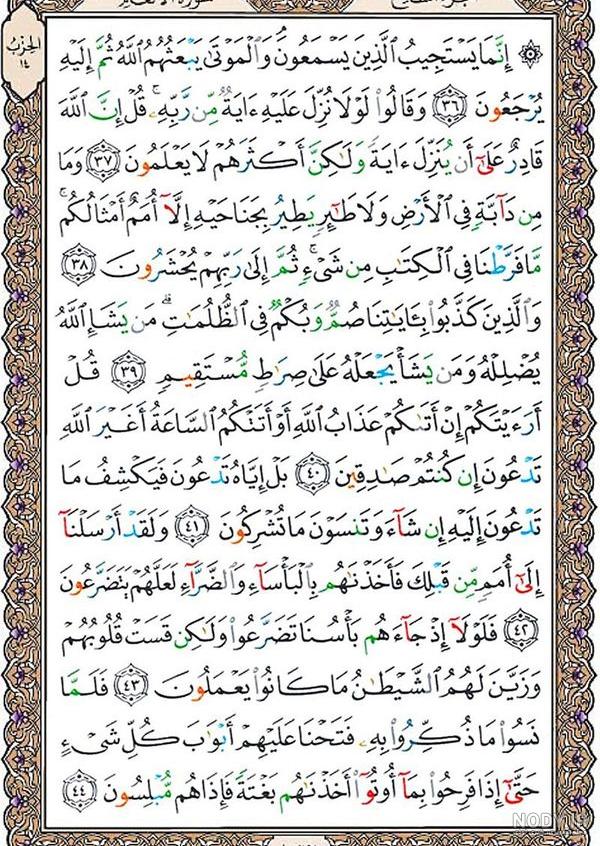 سورة الأنعام
الحزب
١٤
۞ إِنَّمَا يَسْتَجِيبُ ٱلَّذِينَ يَسْمَعُونَ وَٱلْمَوْتَىٰ يَبْعَثُهُمُ ٱللَّهُ ثُمَّ إِلَيْهِ
يُرْجَعُونَ ٣٦ وَقَالُوا۟ لَوْلَا نُزِّلَ عَلَيْهِ ءَايَةٌ مِّن رَّبِّهِۦ ۚ قُلْ إِنَّ ٱللَّهَ
قَادِرٌ عَلَىٰٓ أَن يُنَزِّلَ ءَايَةً وَلَـٰكِنَّ أَكْثَرَهُمْ لَا يَعْلَمُونَ ٣٧ وَمَا
مِن دَآبَّةٍ فِى ٱلْأَرْضِ وَلَا طَـٰٓئِرٍ يَطِيرُ بِجَنَاحَيْهِ إِلَّآ أُمَمٌ أَمْثَالُكُم ۚ
مَّا فَرَّطْنَا فِى ٱلْكِتَـٰبِ مِن شَىْءٍ ۚ ثُمَّ إِلَىٰ رَبِّهِمْ يُحْشَرُونَ ٣٨
وَٱلَّذِينَ كَذَّبُوا۟ بِـَٔايَـٰتِنَا صُمٌّ وَبُكْمٌ فِى ٱلظُّلُمَـٰتِ ۗ مَن يَشَإِ ٱللَّهُ
يُضْلِلْهُ وَمَن يَشَأْ يَجْعَلْهُ عَلَىٰ صِرَٰطٍ مُّسْتَقِيمٍ ٣٩ قُلْ
أَرَءَيْتَكُمْ إِنْ أَتَىٰكُمْ عَذَابُ ٱللَّهِ أَوْ أَتَتْكُمُ ٱلسَّاعَةُ أَغَيْرَ ٱللَّهِ
تَدْعُونَ إِن كُنتُمْ صَـٰدِقِينَ ٤٠ بَلْ إِيَّاهُ تَدْعُونَ فَيَكْشِفُ مَا
تَدْعُونَ إِلَيْهِ إِن شَآءَ وَتَنسَوْنَ مَا تُشْرِكُونَ ٤١ وَلَقَدْ أَرْسَلْنَآ
إِلَىٰٓ أُمَمٍ مِّن قَبْلِكَ فَأَخَذْنَـٰهُم بِٱلْبَأْسَآءِ وَٱلضَّرَّآءِ لَعَلَّهُمْ يَتَضَرَّعُونَ
٤٢ فَلَوْلَآ إِذْ جَآءَهُم بَأْسُنَا تَضَرَّعُوا۟ وَلَـٰكِن قَسَتْ قُلُوبُهُمْ
وَزَيَّنَ لَهُمُ ٱلشَّيْطَـٰنُ مَا كَانُوا۟ يَعْمَلُونَ ٤٣ فَلَمَّا
نَسُوا۟ مَا ذُكِّرُوا۟ بِهِۦ فَتَحْنَا عَلَيْهِمْ أَبْوَٰبَ كُلِّ شَىْءٍ
حَتَّىٰٓ إِذَا فَرِحُوا۟ بِمَآ أُوتُوٓا۟ أَخَذْنَـٰهُم بَغْتَةً فَإِذَا هُم مُّبْلِسُونَ ٤٤